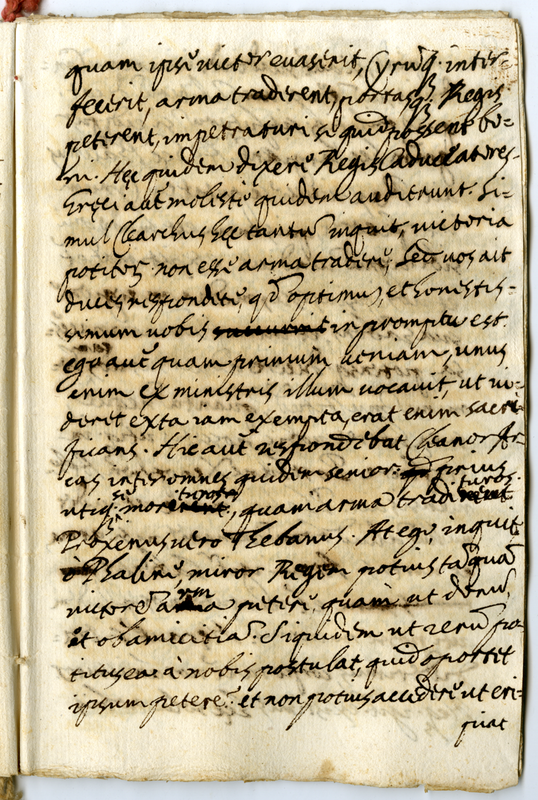 quam ipse victor evaserit, Cyrūq. inter-
fecerit, arma traderent, portasq. Regis
peterent, impetraturi si quid possent bo-
ni. Hęc quidem dixere Regis aduocatores
Gręci aut moleste quidem audierunt. Si-
mul Clearchus hęc tantū inquit, victoria
potitos non esse arma tradere, Sed vos ait
duces respondete, qd optimū, et honestis-
simum vobis in promptu est.
ego aut quam primum veniam, unus
enim ex ministris illum vocavit, ut vi-
deret exta iam exempta, erat enim sacri-
ficans. Hic aut respondebat Cleanor Ar-
cas inter omnes quidem senior: prius
utiq. se morituros, quam arma tradituros.
Proxenus vero Thebanus. At ego, inquit
Phaline, miror Regem potius tāquā
victorē arma petere, quam ut donū,
et ob amicitiā. Si quidem ut rerū po-
titus ea à nobis postulat, quid oportet
ipsum petere? et non potius accedere ut eri-
piat